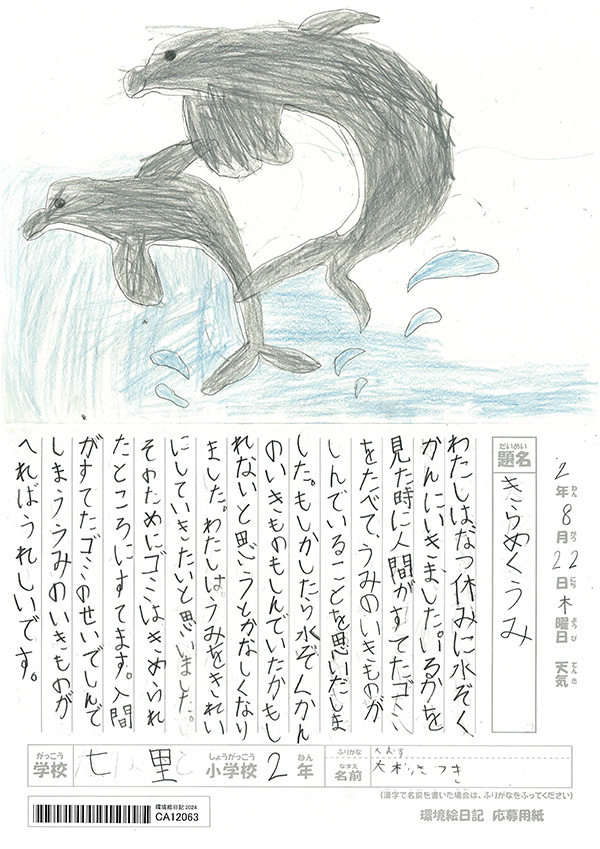 2年8月22日木曜日 天気
ねん がつ にち ようび てんき
だいめい
題名
きらめくうみ
わたしは、なつ休みに水ぞく
かんにいきました。いるかを
見た時に人間がすてたゴミ
をたべて、うみのいきものが
しんでいることを思いだしま
した。もしかしたら水ぞくかん
のいきものもしんでいたかもし
れないと思うとかなしくなり
ました。わたしは、うみをきれい
にしていきたいと思いました。
そのためにゴミはきめられ
たところにすてます。人間
がすてたゴミのせいでしんで
しまううみのいきものが
へればうれしいです。
がっこう しょうがっこう ねん
学校 七里 小学校 2年
ふりがな
なまえ
名前 さつき
(漢字で名前を書いた場合は、ふりがなをふってください)
環境絵日記2024
CA12063
環境絵日記 応募用紙